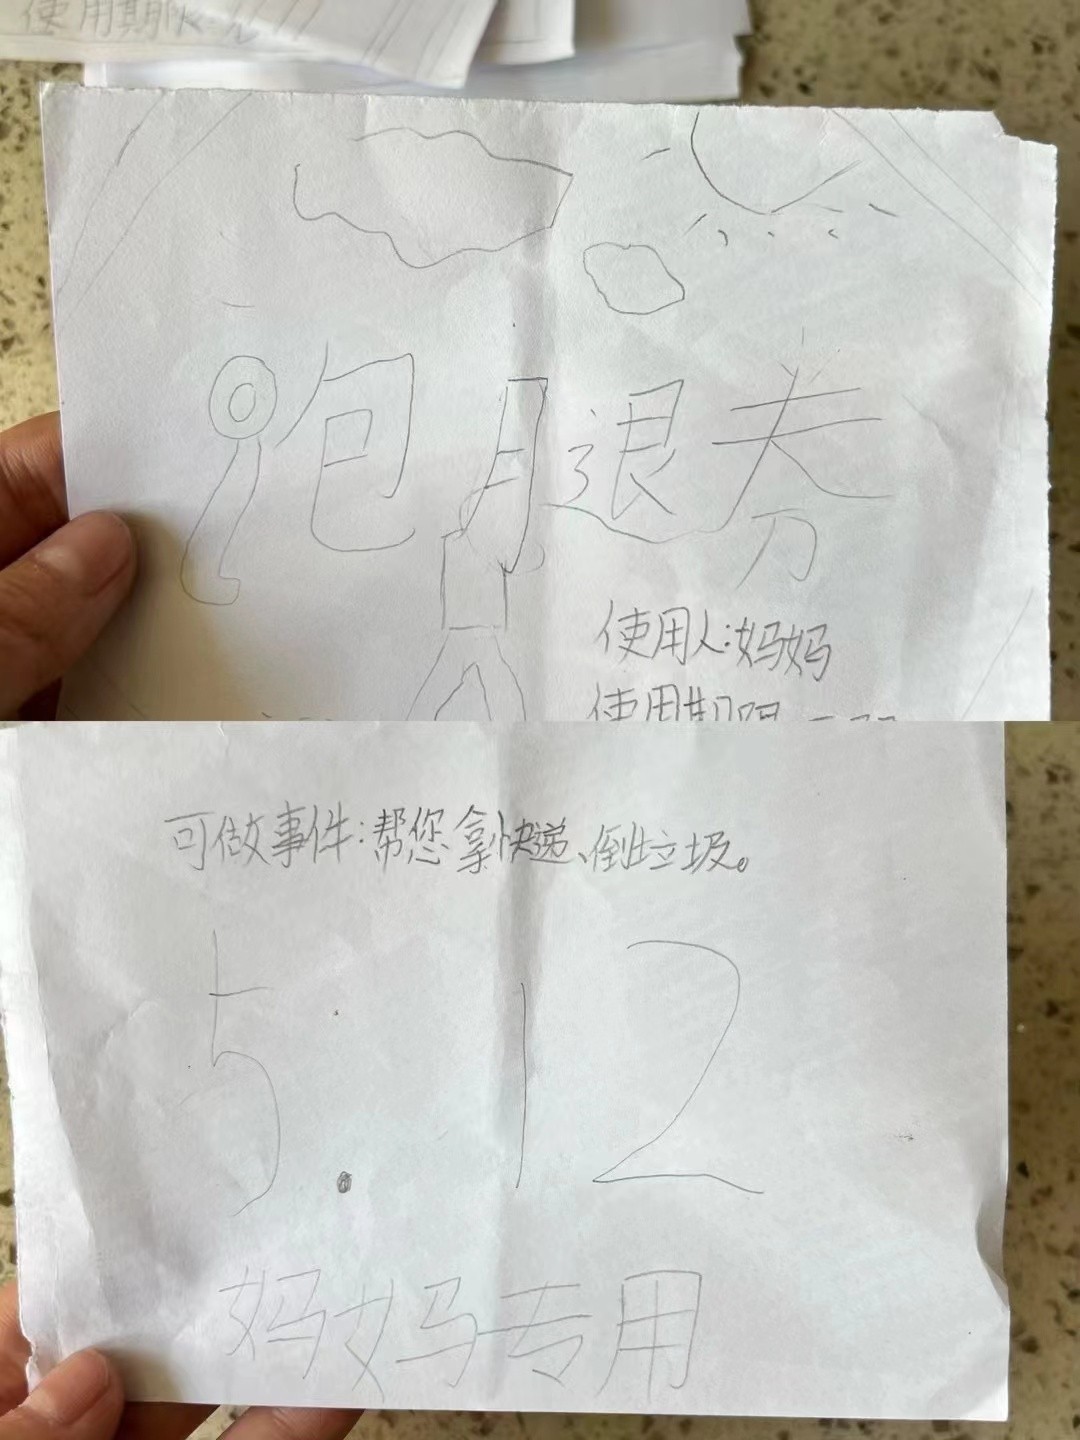 使用期限
跑腿券
使用人:妈妈
使用期限
可做事件:帮您拿快递、倒垃圾。
5.12
妈妈专用